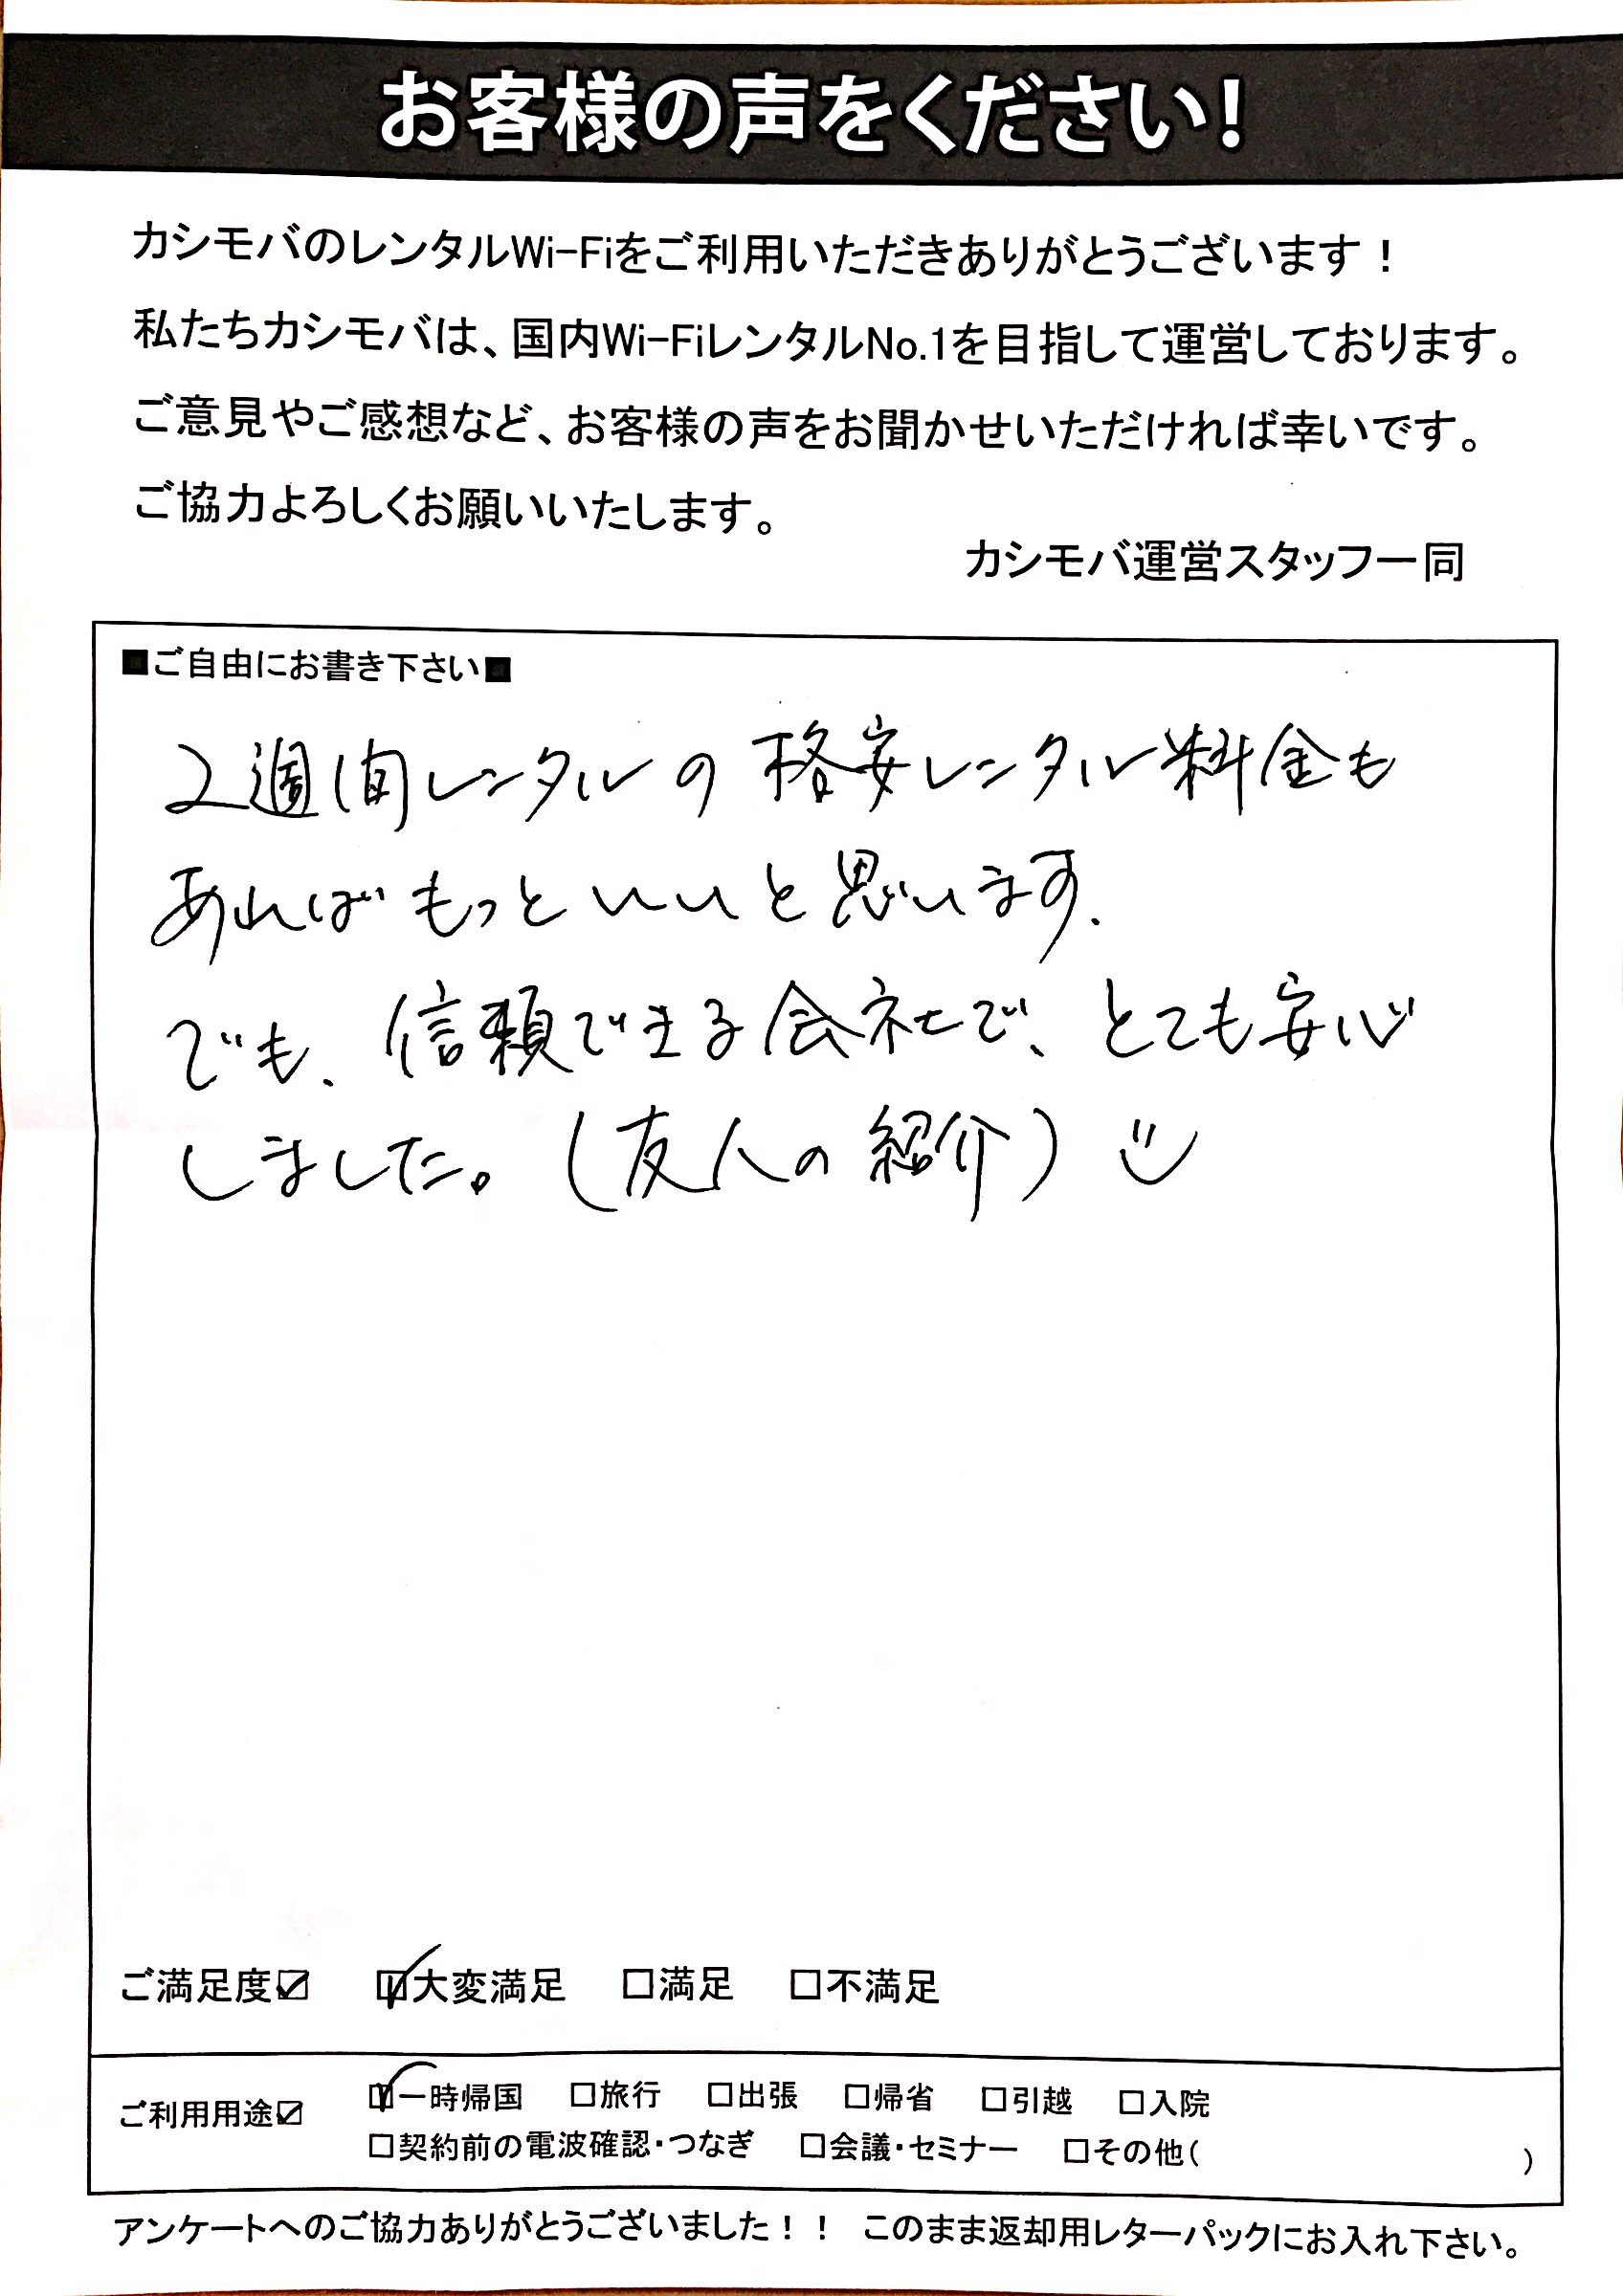 お客様の声をください!
カシモバのレンタルWi-Fiをご利用いただきありがとうございます！
私たちカシモバは、国内Wi-FiレンタルNo.1を目指して運営しております。
ご意見やご感想など、お客様の声をお聞かせいただければ幸いです。
ご協力よろしくお願いいたします。
カシモバ運営スタッフ一同
■ご自由にお書き下さい■
2週間レンタルの格安レンタル料金も
あればもっといいと思います.
でも、信頼できる会社で、とても安心
しました。(友人の紹介)
ご満足度☑ ☑大変満足 □満足 □不満足
ご利用用途☑ ☑一時帰国 □旅行 □出張 □帰省 □引越 □入院
□契約前の電波確認・つなぎ □会議・セミナー □その他( )
アンケートへのご協力ありがとうございました！！ このまま返却用レターパックにお入れ下さい。